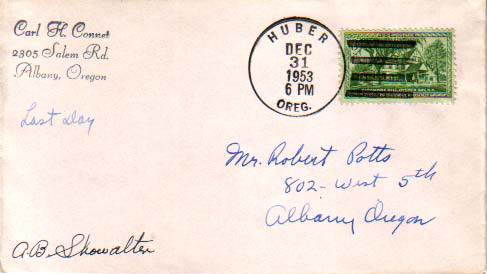 Carl H. Connet
2305 Salem Rd.
Albany, Oregon
HUBER
DEC
31
1953
6 PM
OREG.
Last Day
Mr. Robert Potts
802 - West 5th
Albany Oregon
A.B. Showalter